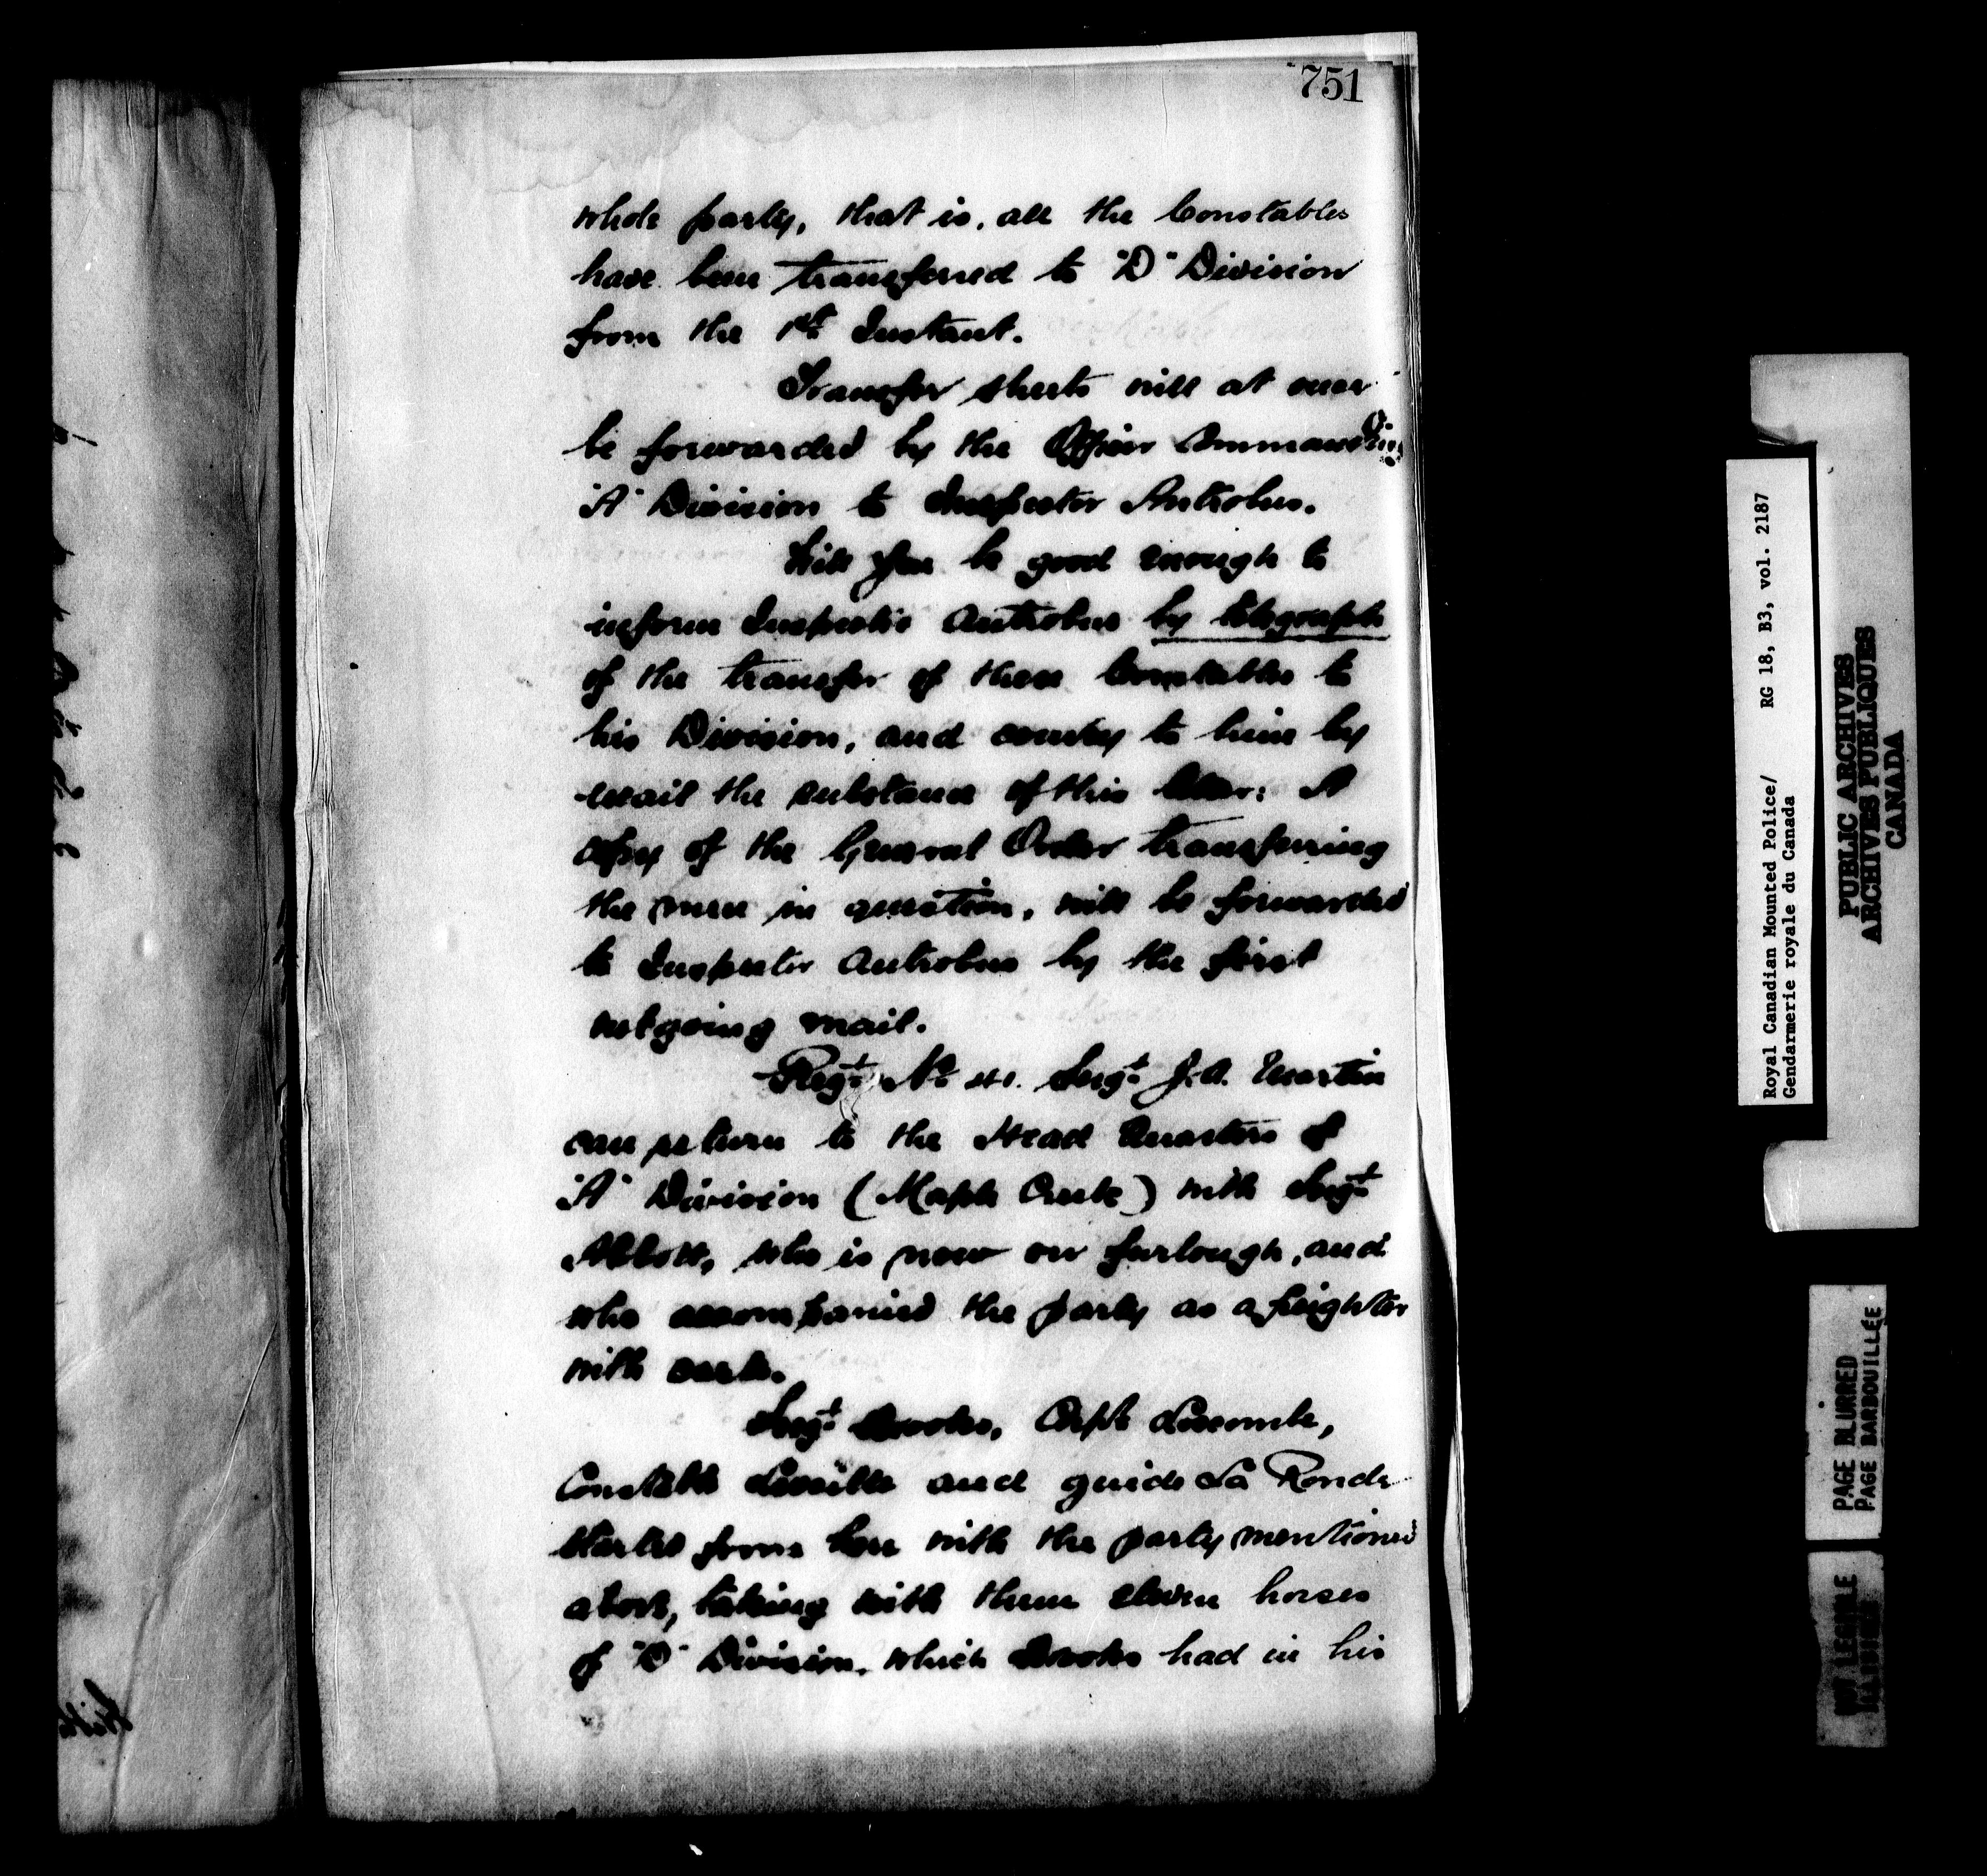 751
whole party, that is, all the Constables
have been transferred to "D" Division
from the 1st Instant.
Transfer sheets will at once
be forwarded by the Officer Commanding
"A" Division to Inspector Antrobus.
Will you be good enough to
inform Inspector Antrobus by telegraph
of the transfer of these Constables to
his Division, and convey to him by
mail the substance of this letter: A
copy of the General Order transferring
the men in question, will be forwarded
to Inspector Antrobus by the first
outgoing mail.
Regt. No. Sergt. J.A. Martin
can return to the Head Quarters of
"A" Division (Maple Creek) with Sergt.
Abbott, who is now on furlough, and
who accompanied the party as a freighter
with carts.
Sergt. Brooks, Corpl.
Constable and guide La Ronde
started from here with the party mentioned
above, taking with them eleven horses
of "D" Division, which Brooks had in his
Royal Canadian Mounted Police/ RG 18, B3, vol. 2187
Gendarmerie royale du Canada
PUBLIC ARCHIVES
ARCHIVES PUBLIQUES
CANADA
PAGE BLURRED
PAGE BARBOUILLÉE
NOT LEGIBLE